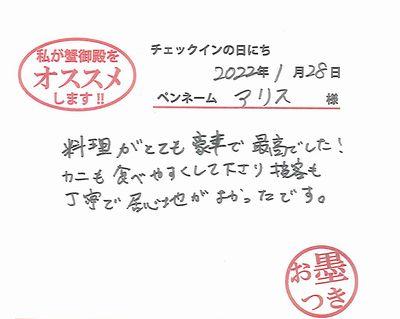 私が蟹御殿を
オススメ
します!!
チェックインの日にち
2022年1月28日
ペンネーム アリス 様
料理がとても豪華で最高でした!
カニも食べやすくして下さり接客も
丁寧で居心地がよかったです。
お墨つき